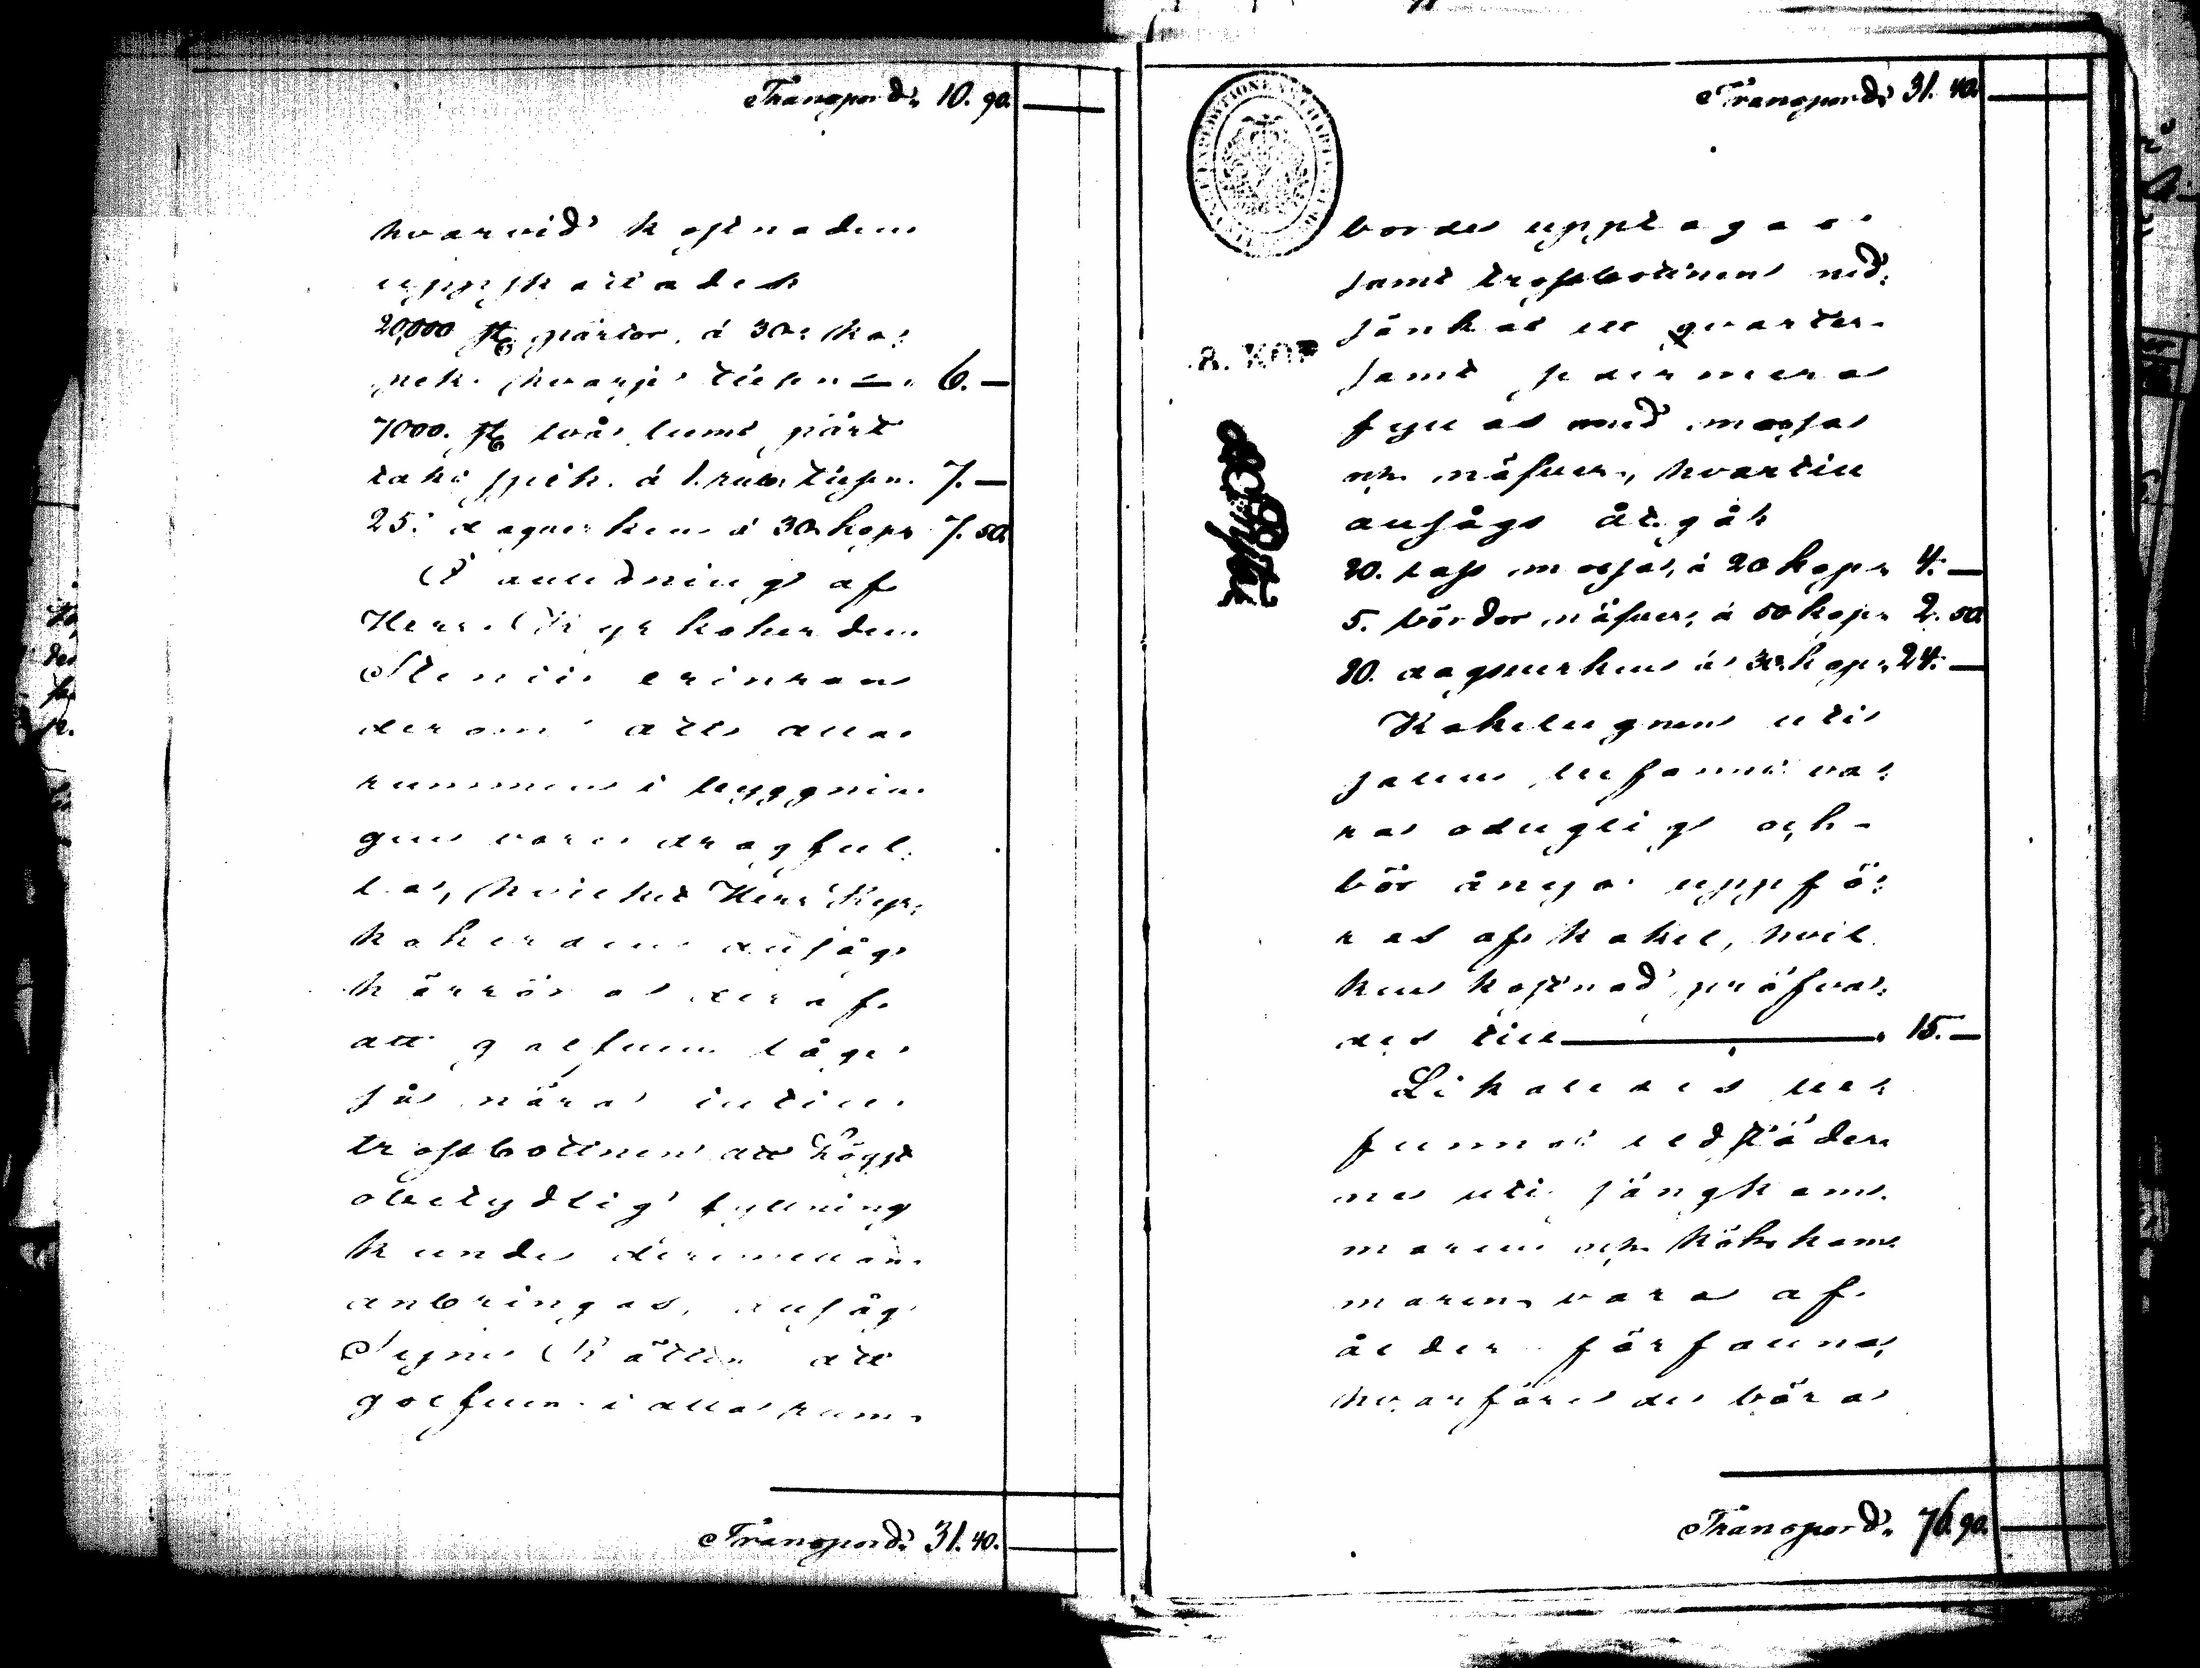 Transpord: 10. 90.
hvarvid kostnaden
uppskattades
20,000 st. pärtor, à 30. ko=
pek. hvarje tusen — 6. —
7000. st. två tums pärt
taks spik. à 1. rub. tusen. 7. —
25. dagsverken à 30 kop. 7. 50.
I anledning af
Herr Kyrkoherden
Stenii erinran
derom att alla
rummen i byggnin
gen voro dragful=
la, hvilket Herr Kyr=
koherden ansåg
härröra deraf
att golfven låge
så nära intill
trossbottnen att högst
obetydlig fyllning
kunde deremellan
anbringas, ansåg
Syne Rätten att
golfven i alla rum=
Transpord: 31. 40.
Transpord: 31. 40.
8. KOP
borde upptagas
samt trossbottnen ned=
sänkas ett qvarter
samt sedermera
fyllas med mossa
och näfver, hvartill
ansågs åtgå
20. lass mossa, à 20 kop. 4. —
5. bördor näfver, à 50 kop. 2. 50.
80. dagsverken à 30. kop. 24. —
Kakelugnen uti
salen befanns va=
ra oduglig och
bör ånyo uppfö=
ras af kakel, hvil
ken kostnad pröfva=
des till — 15. —
Likaledes be
funnos eldstäder
na uti sängkam
maren och kökskam
maren vara af
ålder förfallna,
hvarföre de böra
Transpord: 76. 90.